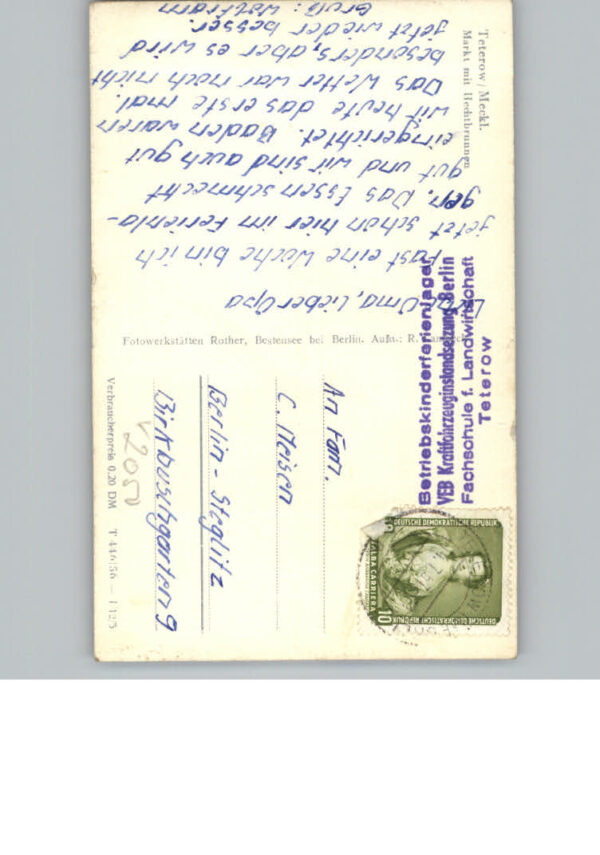 Teterow/Meckl.
Markt mit Hechtbrunnen
Oma, lieber Opa
Fast eine Woche bin ich
jetzt schon hier im Ferienla-
ger. Das Essen schmeckt
gut und wir sind auch gut
eingerichtet. Baden waren
wir heute das erste mal.
Das Wetter war noch nicht
besonders, aber es wird
jetzt wieder besser.
Gruß: Wolfram
Fotowerkstätten Rother, Bestensee bei Berlin. Aufn.: R.
Betriebskinderferienlager
VEB Kraftfahrzeuginstandsetzung Berlin
Fachschule f. Landwirtschaft
Teterow
DEUTSCHE DEMOKRATISCHE REPUBLIK
10
ROSALBA CARRIERA
10
DEUTSCHE DEMOKRATISCHE REPUBLIK
An Fam.
C. Meisen
Berlin - Steglitz
Birkbuschgarten 9
V2050
Verbraucherpreis 0,20 DM T 446/56 — 1125